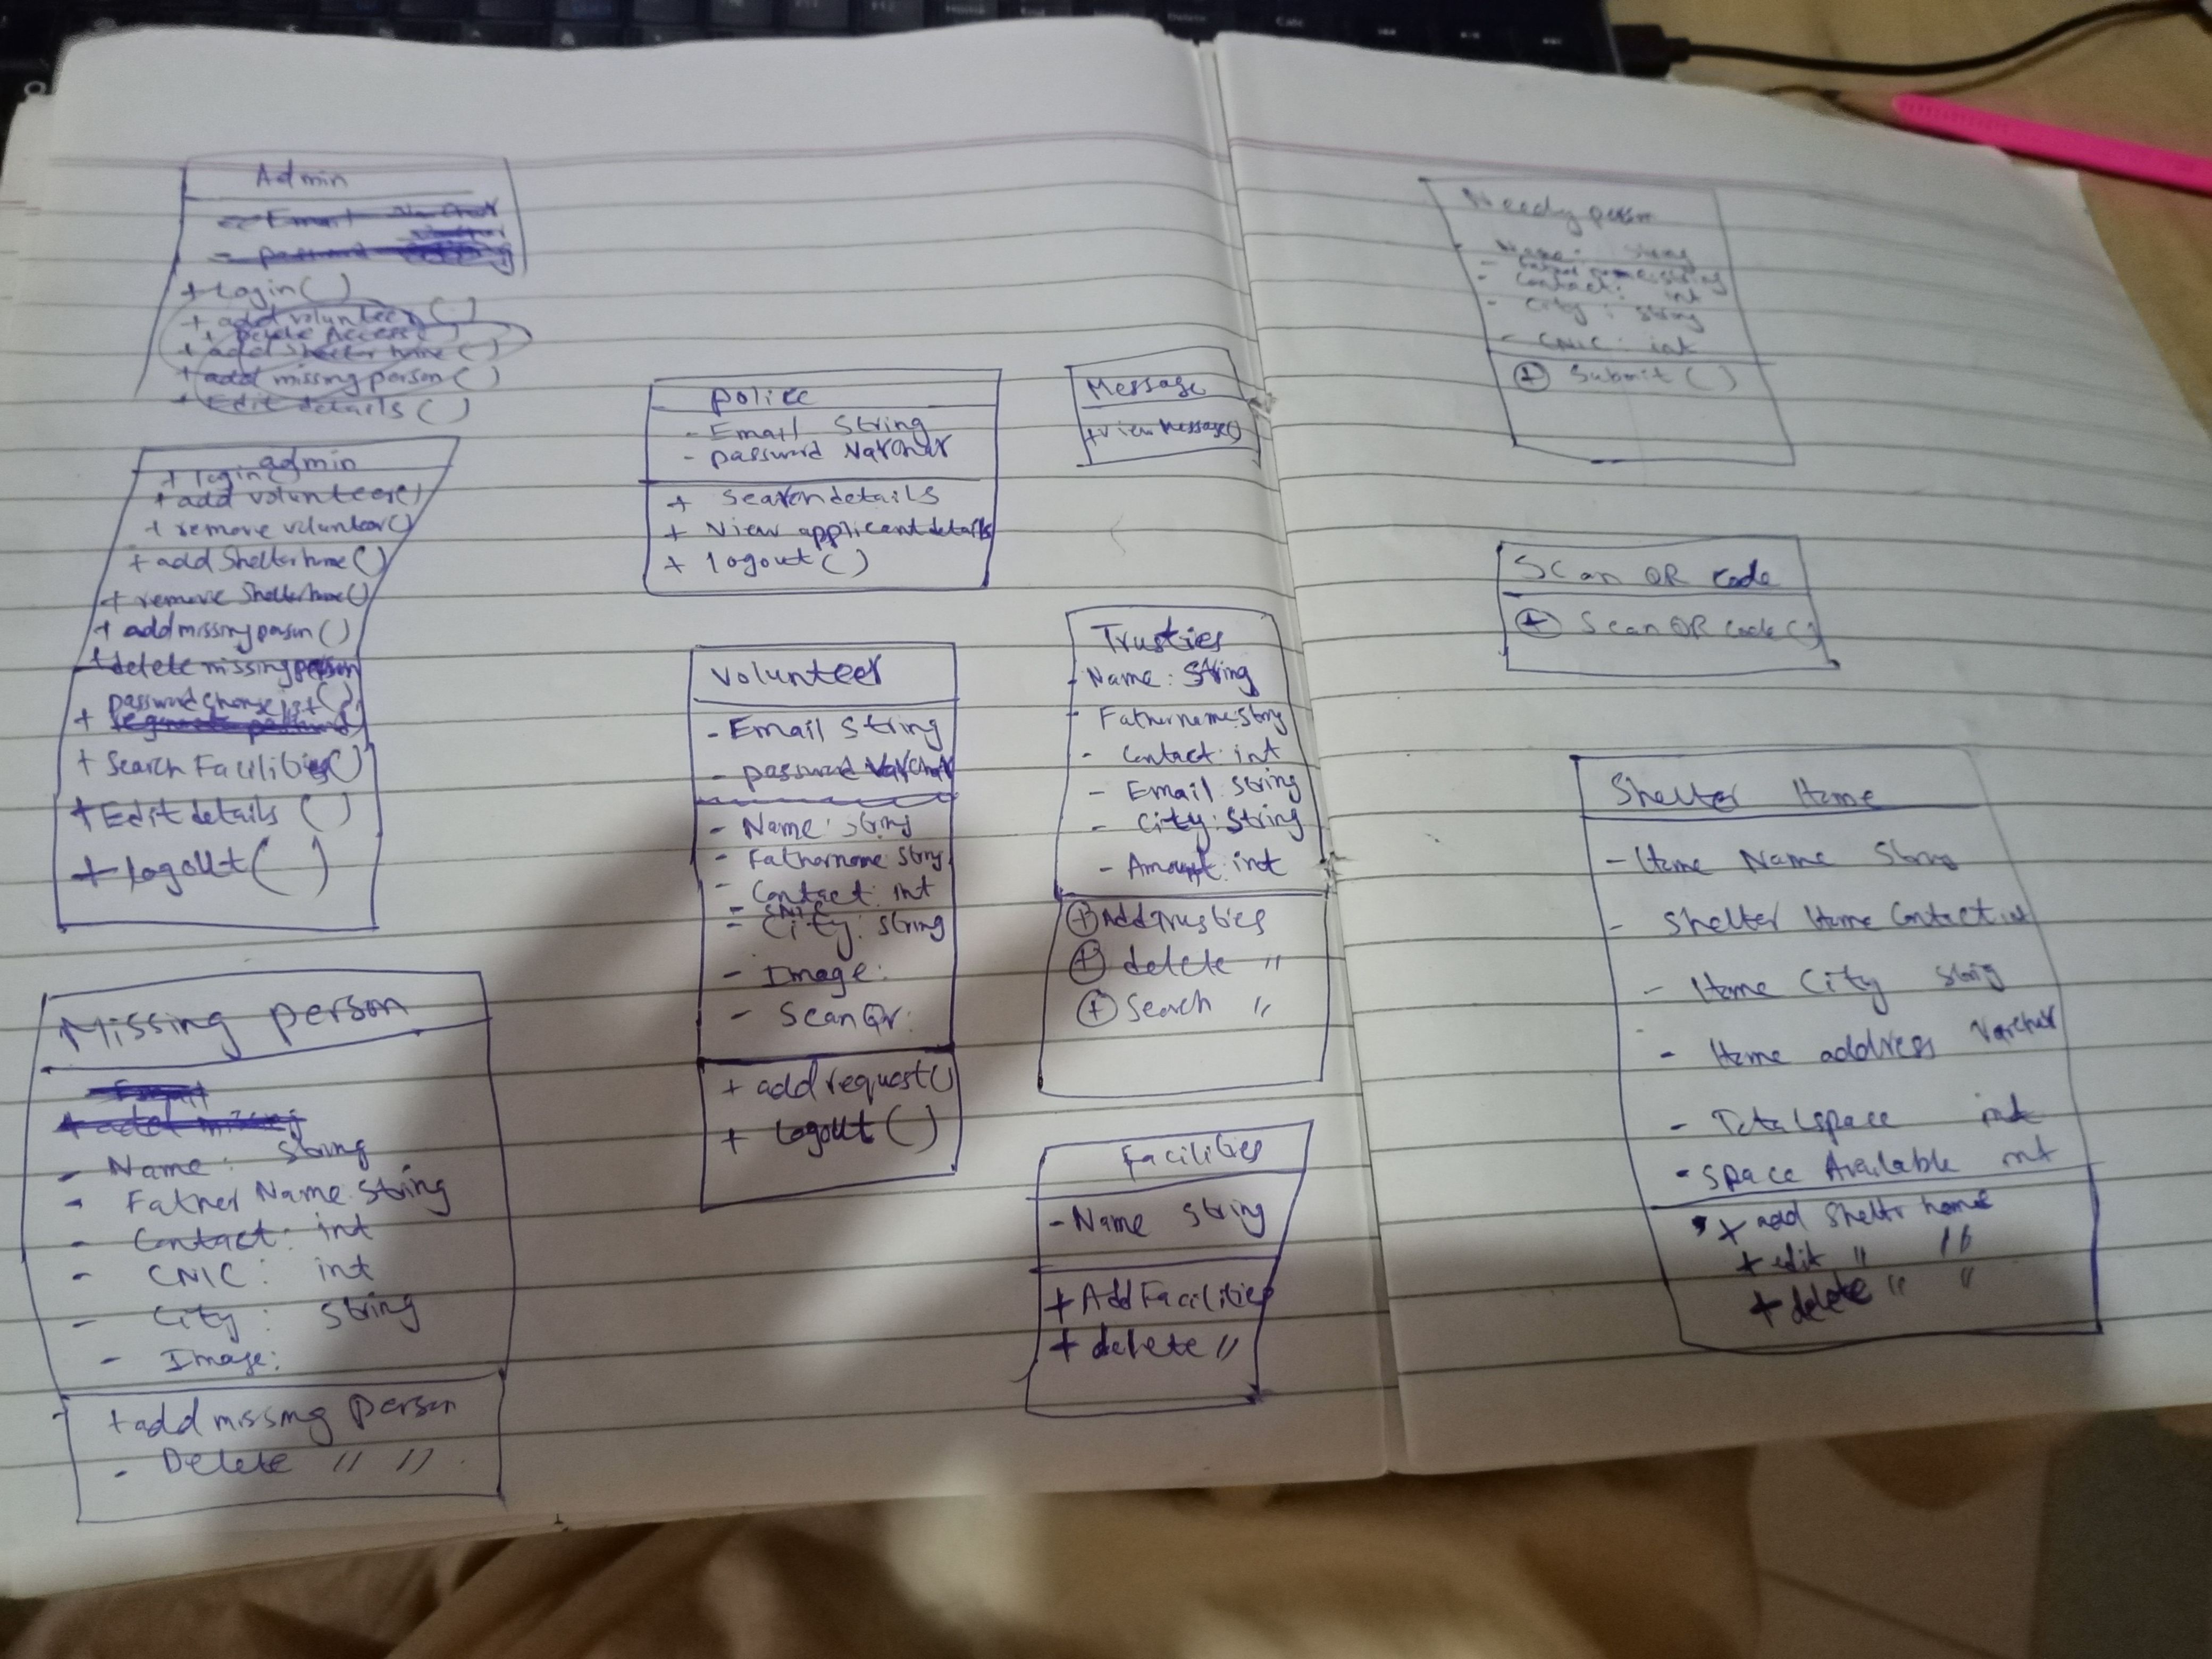 Admin
- Email Varchar
- password
+ Login()
+ add volunteer ()
+ Delete Access()
+ add Shelter home()
+ add missing person()
+ Edit details ()
admin
+ login()
+ add volunteer()
+ remove volunteer()
+ add Shelterhome()
+ remove Shelterhome()
+ add missing person()
+ delete missing person
password change
+
+ Search Facilities()
+ Edit details ()
+ logout()
Missing person
Email
+ add missing
- Name: String
- Father Name: String
- Contact: int
- CNIC: int
- City: String
- Image:
+ add missing person
- Delete " "
police
- Email String
- password Varchar
+ Search details
+ View applicant details
+ logout()
Volunteer
- Email String
- password Varchar
- Name: String
- Fathername: String
- Contact: int
- CNIC
- City: String
- Image:
- ScanQr:
+ add request()
+ Logout()
Message
+ View Message()
Trusties
- Name: String
- Fathername: String
- Contact: int
- Email: String
- City: String
- Amount: int
+ Add Trusties
+ delete "
+ Search "
Facilities
- Name String
+ Add Facilities
+ delete "
Needy person
- Name: String
- Father name: String
- Contact: int
- City: String
- CNIC: int
+ Submit()
Scan QR Code
+ Scan QR Code()
Shelter Home
- Home Name String
- Shelter Home Contact int
- Home City String
- Home address Varchar
- Total space int
- Space Available int
+ add Shelter home
+ edit " "
+ delete " "